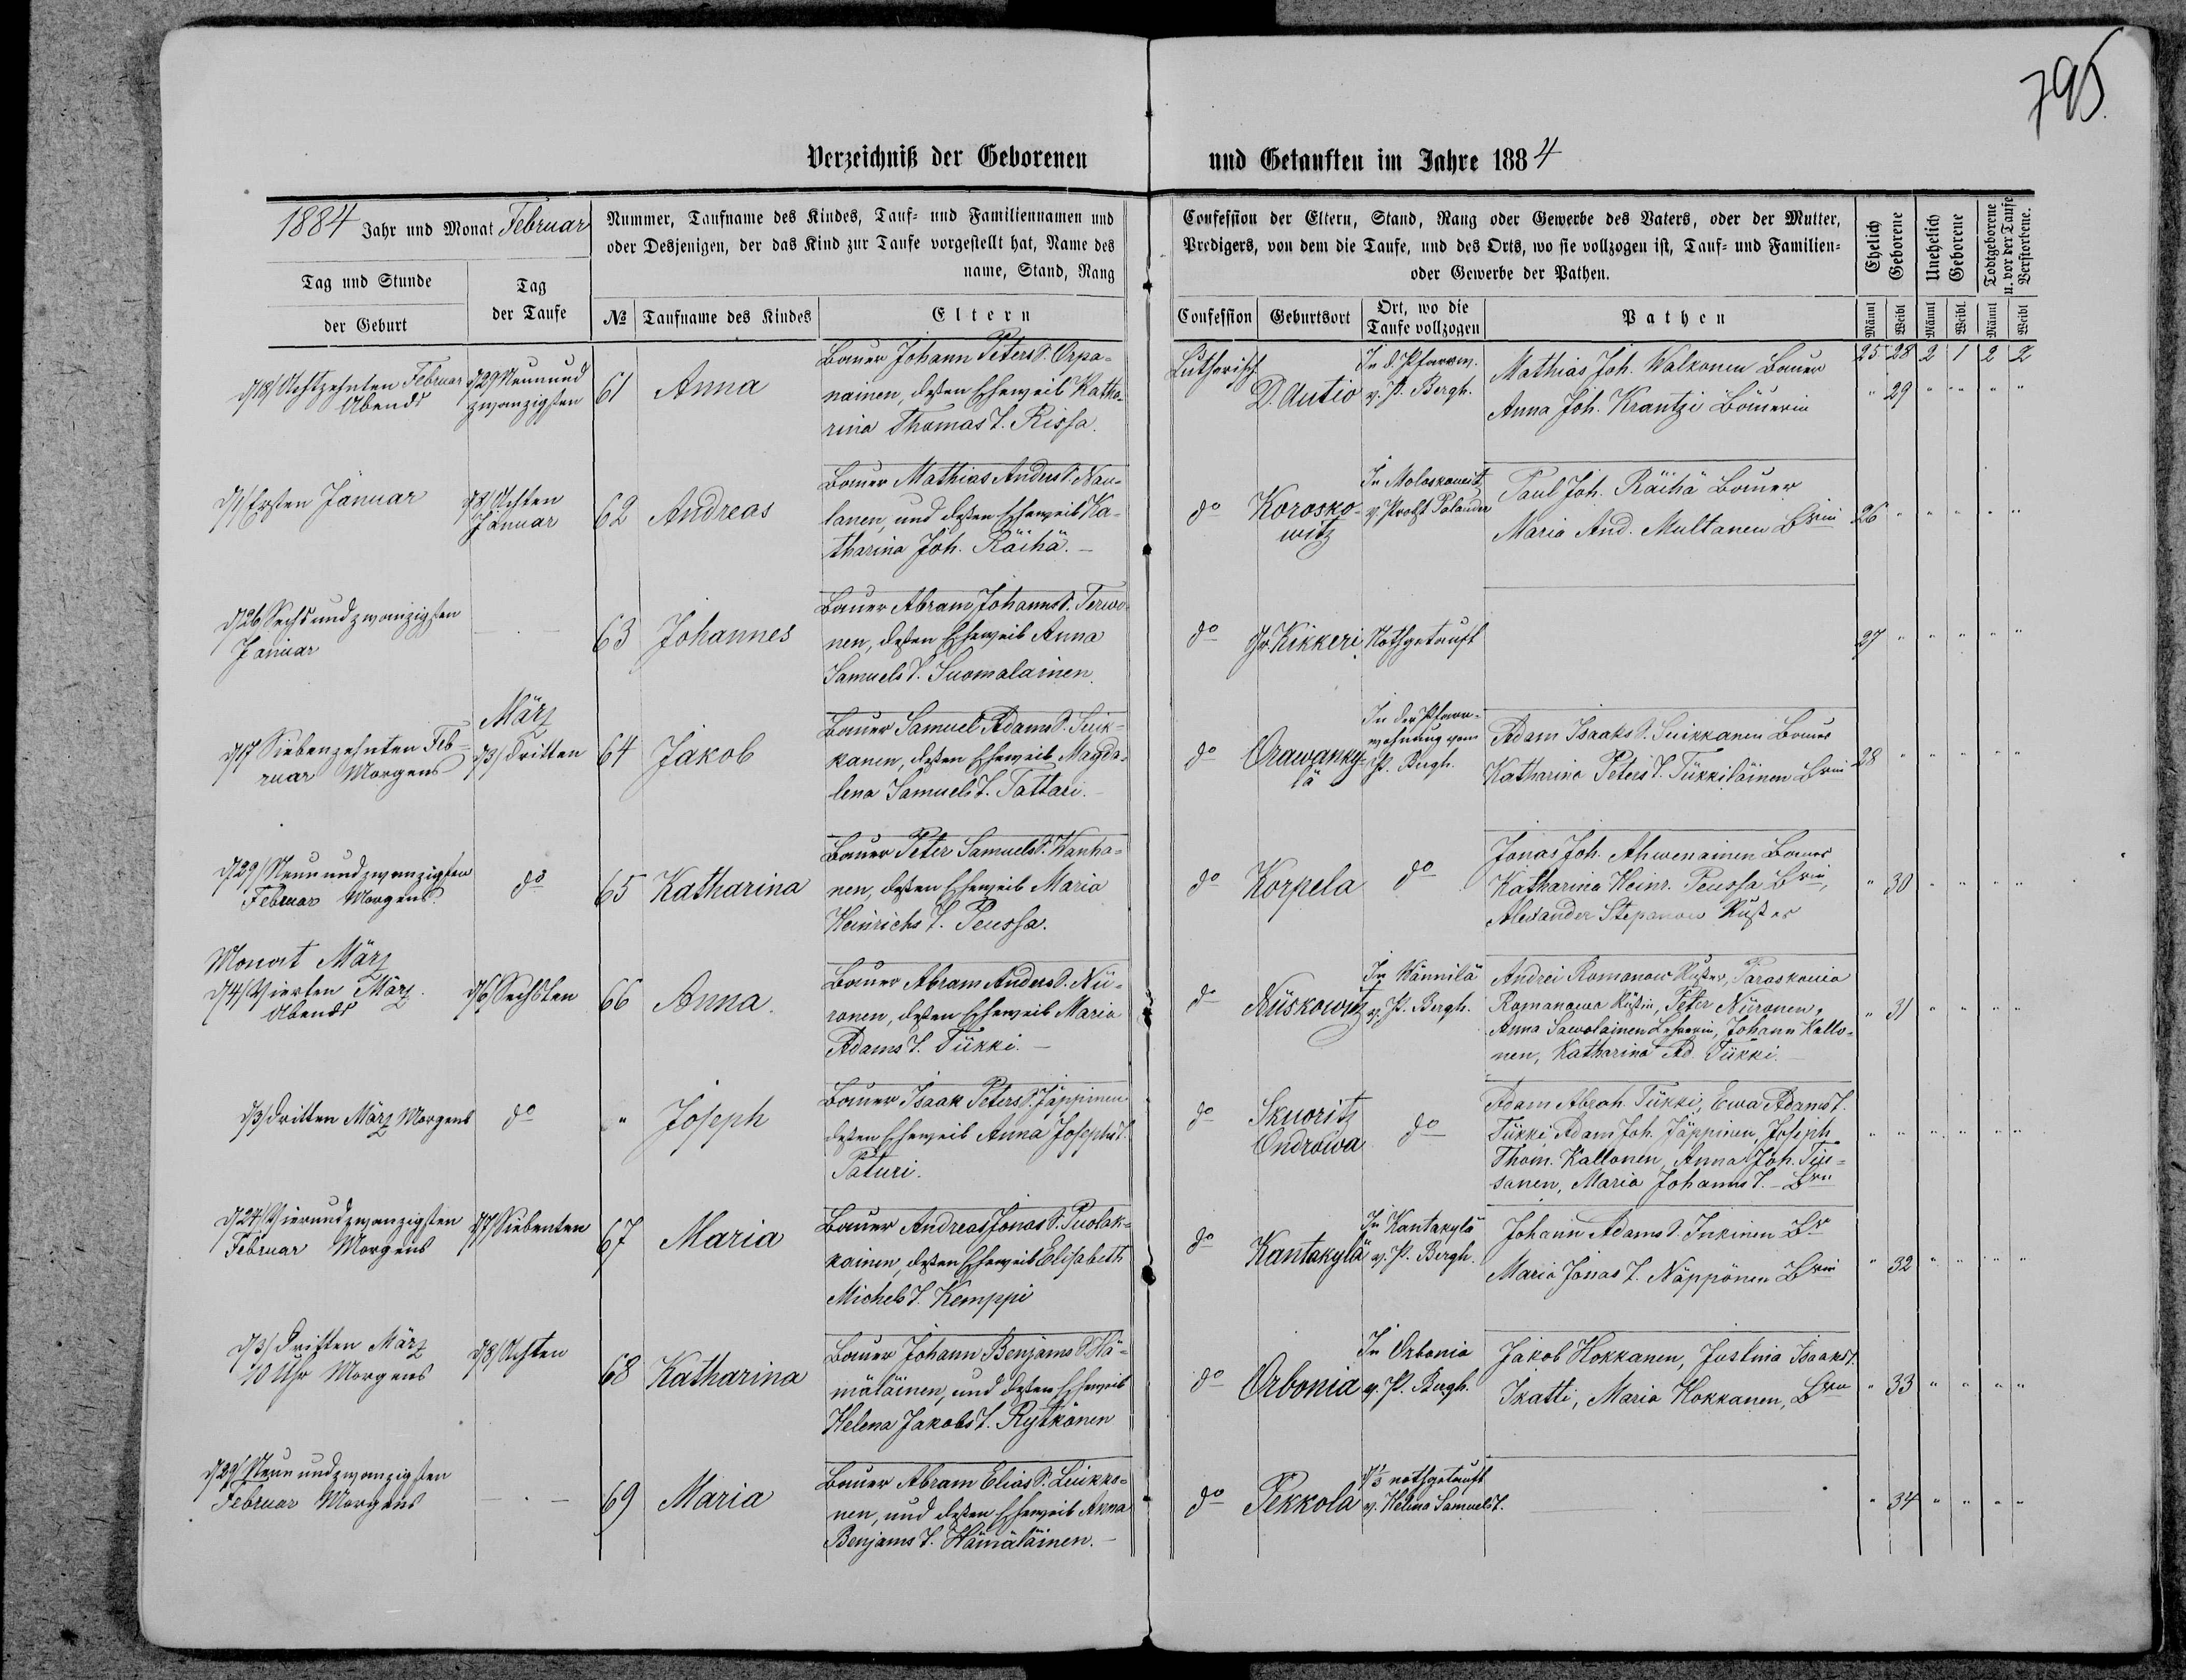 795.
Verzeichniß der Geborenen
und Getauften im Jahre 1884
1884 Jahr und Monat Februar
Tag und Stunde
der Geburt
Tag
der Taufe
Nummer, Taufname des Kindes, Tauf- und Familiennamen und
oder Desjenigen, der das Kind zur Taufe vorgestellt hat, Name des
name, Stand, Rang
№ Taufname des Kindes
Eltern
Confession der Eltern, Stand, Rang oder Gewerbe des Vaters, oder der Mutter,
Predigers, von dem die Taufe, und des Orts, wo sie vollzogen ist, Tauf- und Familien-
oder Gewerbe der Pathen.
Confession Geburtsort
Ort, wo die
Taufe vollzogen
Pathen
Ehelich
Geborene
Unehelich
Geborene
Todtgeborene
u. vor der Taufe
Verstorbene.
Männl Weibl Männl Weibl. Männl Weibl
25 28 2 1 2 2
d/18/ Achtzehnten Februar
Abends
d/29 Neunund
zwanzigsten
61 Anna
Bauer Johann Peters S. Orpa-
nainen, dessen Eheweib Katha-
rina Thomas T. Rissa.
Lutherisch
D. Autio
In d. Pfarrw.
v. P. Bergh.
Mathias Joh. Walkonen Bauer
Anna Joh. Krantzi Bäuerin
" 29 " " " "
d/1/ Ersten Januar
d/8/ Achten
Januar
62 Andreas
Bauer Mathias Anders S. Nau-
lanen, und dessen Eheweib Ka-
tharina Joh. Räihä. –
do
Korosko-
witz
In Moloskowitz
v. Probst Palander
Paul Joh. Räihä Bauer
Maria And. Multanen Brin
26 " " " " "
d/26 Sechsundzwanzigsten
Januar
63 Johannes
Bauer Abram Johanns S. Terwo-
nen, dessen Eheweib Anna
Samuels T. Suomalainen.
do Gr. Kikkeri Nothgetauft
27 " " " " "
d/17 Siebenzehnten Feb-
ruar Morgens
März
d/3/ Dritten
64 Jakob
Bauer Samuel Adams S. Suik-
kanen, dessen Eheweib Magda-
lena Samuels T. Tattari. –
do
Orawanky-
lä
In der Pfarr-
wohnung vom
P. Bergh.
Adam Isaaks S. Suikkanen Bauer
Katharina Peters T. Tükkiläinen Brin
28 " " " " "
d/29/ Neunundzwanzigsten
Februar Morgens.
do
65 Katharina
Bauer Peter Samuels S. Wanha-
nen, dessen Eheweib Maria
Heinrichs T. Peussa.
do Korpela do
Jonas Joh. Ahwenainen Bauer
Katharina Heinr. Peussa Brin,
Alexander Stepanow Küster
" 30 " " " "
Monat März
d/4/ Vierten März.
Abends
d/6/ Sechsten
66 Anna.
Bauer Abram Anders S. Nü-
ronen, dessen Eheweib Maria
Adams T. Tükki. –
do Nüskowitz
In Wännilä
v. P. Bergh.
Andrei Romanow Russe, Paraskowia
Romanowa Russin, Peter Nüronen,
Anna Sawolainen Lehrerin, Johann Kallo-
nen, Katharina Ad. Tükki. –
" 31 " " " "
d/3/ Dritten März Morgens
do
" Joseph
Bauer Isaak Peters S. Jäppinen
dessen Eheweib Anna Josephs T.
Paturi.
do
Skuoritz
Ondrowa
do
Adam Abrah. Tükki, Ewa Adams T.
Tükki, Adam Joh. Jäppinen, Joseph
Thom. Kallonen, Anna Joh. Tiu-
sanen, Maria Johanns T. – Brn
" " " " " "
d/24/ Vierundzwanzigsten
Februar Morgens
d/7/ Siebenten
67 Maria
Bauer Andreas Jonas S. Puolak-
kainen, dessen Eheweib Elisabeth
Michels T. Kemppi
do Kantakylä
In Kantakylä
v. P. Bergh.
Johann Adams S. Inkinen Br
Maria Jonas T. Näppönen Brin
" 32 " " " "
d/3/ Dritten März
10 Uhr Morgens
d/8/ Achten
68 Katharina
Bauer Johann Benjams S. Hä-
mäläinen, und dessen Eheweib
Helena Jakobs T. Rytkönen
do Orbonia
In Orbonia
v. P. Bergh.
Jakob Hokkanen, Justina Isaaks T.
Ikatti, Maria Hokkanen, Brn
" 33 " " " "
d/29/ Neunundzwanzigsten
Februar Morgens
69 Maria
Bauer Abram Elias S. Liukko-
nen, und dessen Eheweib Anna
Benjams T. Hämäläinen. –
do Pekkola
d 1/3 nothgetauft
v. Helina Samuels T.
" 34 " " " "